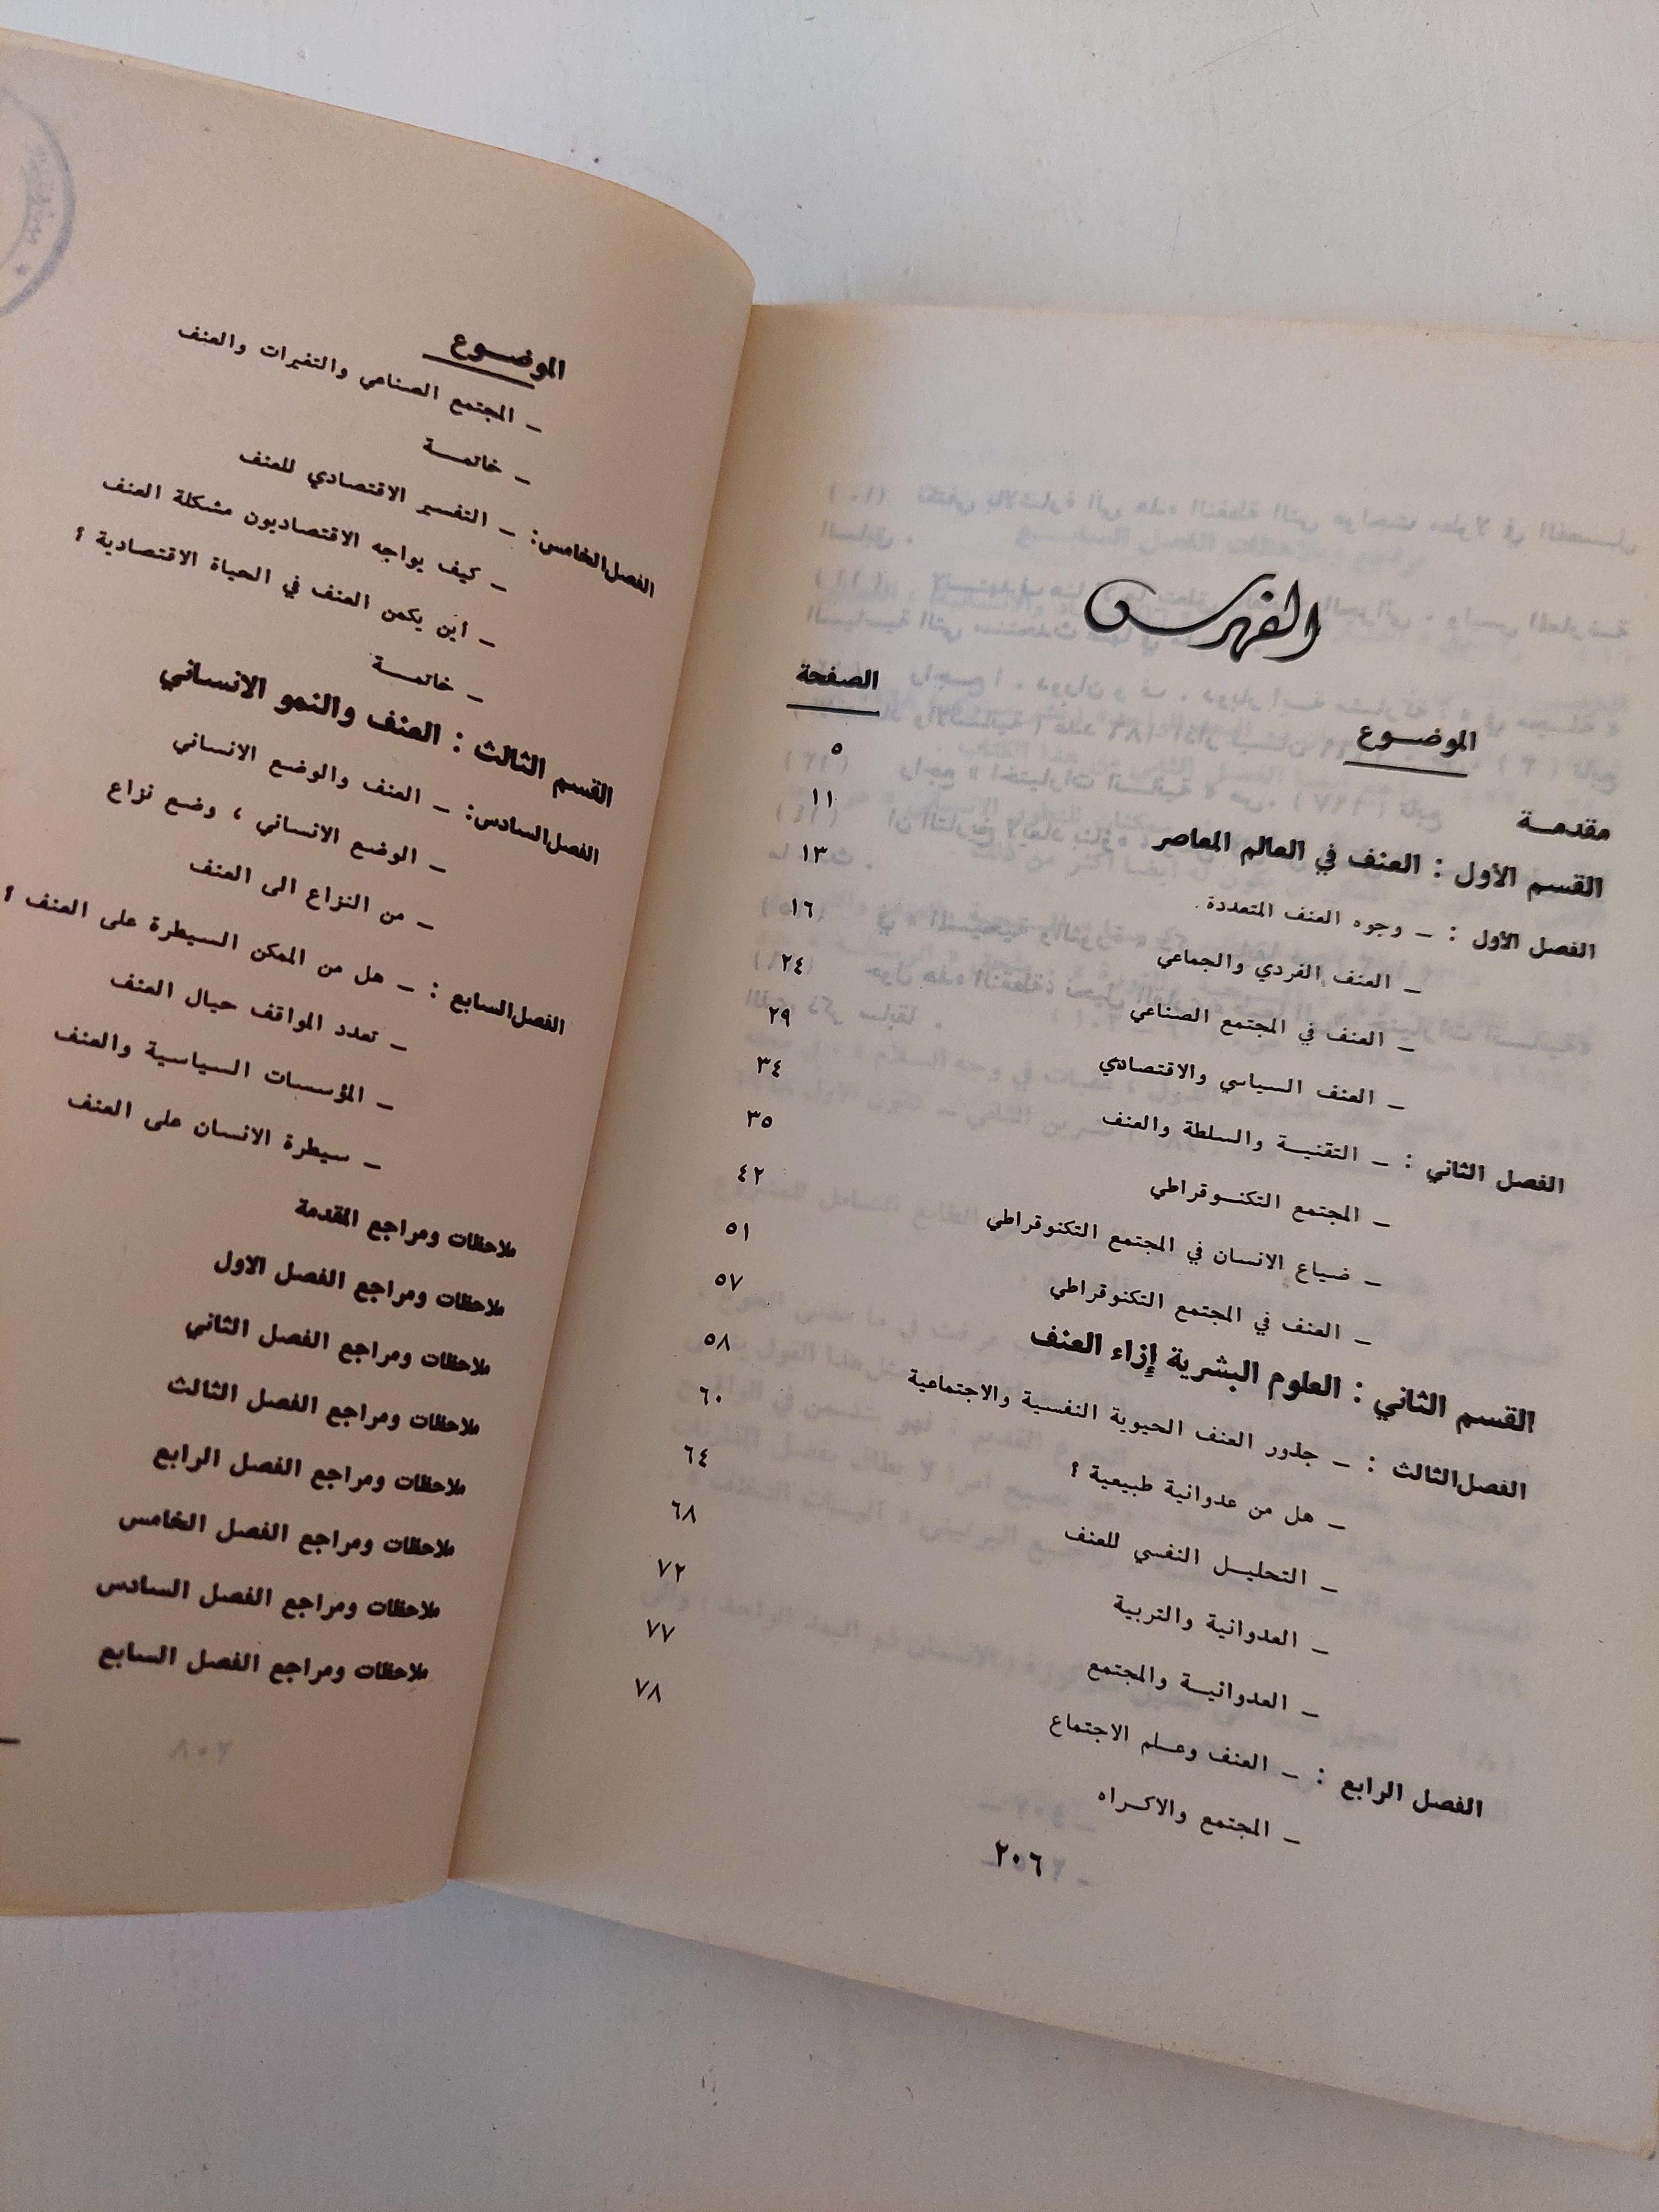 الفهرس
الموضــوع الصفحة
مقدمــة ٥
القسم الأول : العنف في العالم المعاصر ١١
الفصل الأول : ــ وجوه العنف المتعددة ١٣
ــ العنف الفردي والجماعي ١٦
ــ العنف في المجتمع الصناعي ٢٤
ــ العنف السياسي والاقتصادي ٢٩
الفصل الثاني : ــ التقنيــة والسلطة والعنف ٣٤
ــ المجتمع التكنــوقراطي ٣٥
ــ ضياع الانسان في المجتمع التكنوقراطي ٤٢
ــ العنف في المجتمع التكنوقراطي ٥١
القسم الثاني : العلوم البشرية إزاء العنف ٥٧
الفصل الثالث : ــ جذور العنف الحيوية النفسية والاجتماعية ٥٨
ــ هل من عدوانية طبيعية ؟ ٦٠
ــ التحليــل النفسي للعنف ٦٤
ــ العدوانية والتربية ٦٨
ــ العدوانيــة والمجتمع ٧٢
الفصل الرابع : ــ العنف وعــلم الاجتماع ٧٧
ــ المجتمع والاكــراه ٧٨
٢٠٦
الموضــوع
ــ المجتمع الصناعي والتغيرات والعنف
ــ خاتمــة
الفصل الخامس: ــ التفسير الاقتصادي للعنف
ــ كيف يواجه الاقتصاديون مشكلة العنف
ــ أين يكمن العنف في الحياة الاقتصادية ؟
ــ خاتمــة
القسم الثالث : العنف والنمو الانساني
الفصل السادس: ــ العنف والوضع الانساني
ــ الوضع الانساني ، وضع نزاع
ــ من النزاع الى العنف
الفصل السابع : ــ هل من الممكن السيطرة على العنف ؟
ــ تعدد المواقف حيال العنف
ــ المؤسسات السياسية والعنف
ــ سيطرة الانسان على العنف
ملاحظات ومراجع المقدمة
ملاحظات ومراجع الفصل الاول
ملاحظات ومراجع الفصل الثاني
ملاحظات ومراجع الفصل الثالث
ملاحظات ومراجع الفصل الرابع
ملاحظات ومراجع الفصل الخامس
ملاحظات ومراجع الفصل السادس
ملاحظات ومراجع الفصل السابع